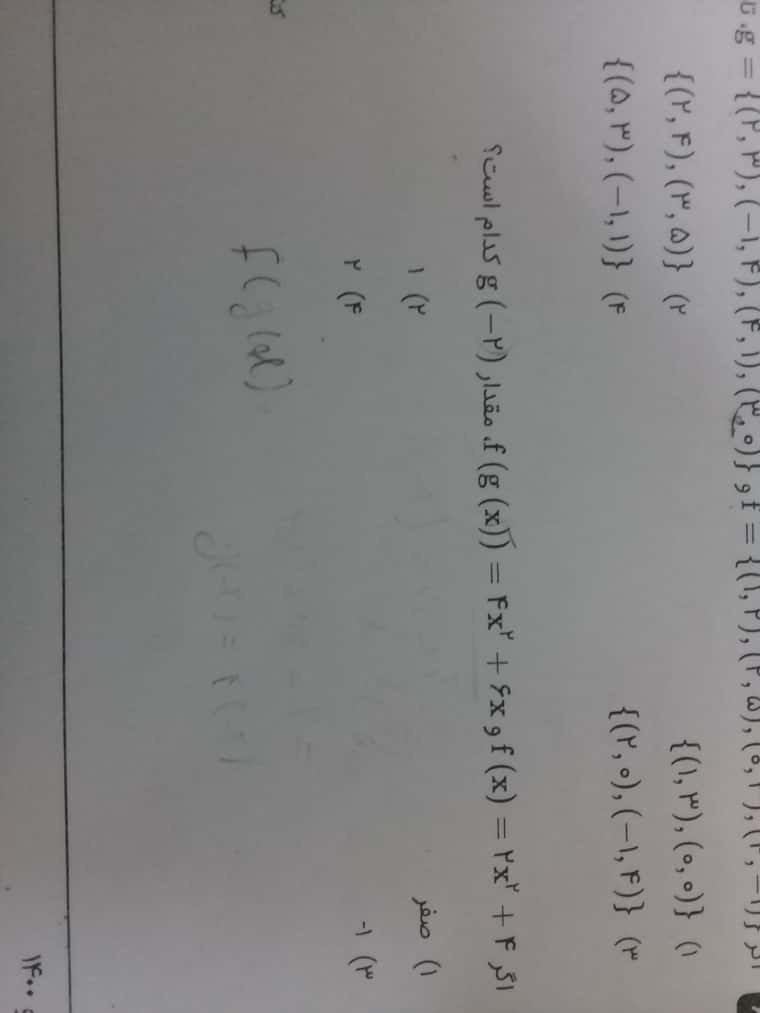 اگر f = {(۱, ۲), (۲, ۵), و g = {(۲, ۳), (−۱, ۴), (۴, ۱), (۳, ۰)}
۱) {(۱, ۳), (۰, ۰)} ۲) {(۲, ۴), (۳, ۵)}
۳) {(۲, ۰), (−۱, ۴)} ۴) {(۵, ۳), (−۱, ۱)}
اگر f(x) = ۲x^۲ + ۴ و f(g(x)) = ۴x^۲ + ۶x، مقدار g(−۲) کدام است؟
۱) صفر ۲) ۱
۳) -۱ ۴) ۲
f(g(x))
۱۴۰۰